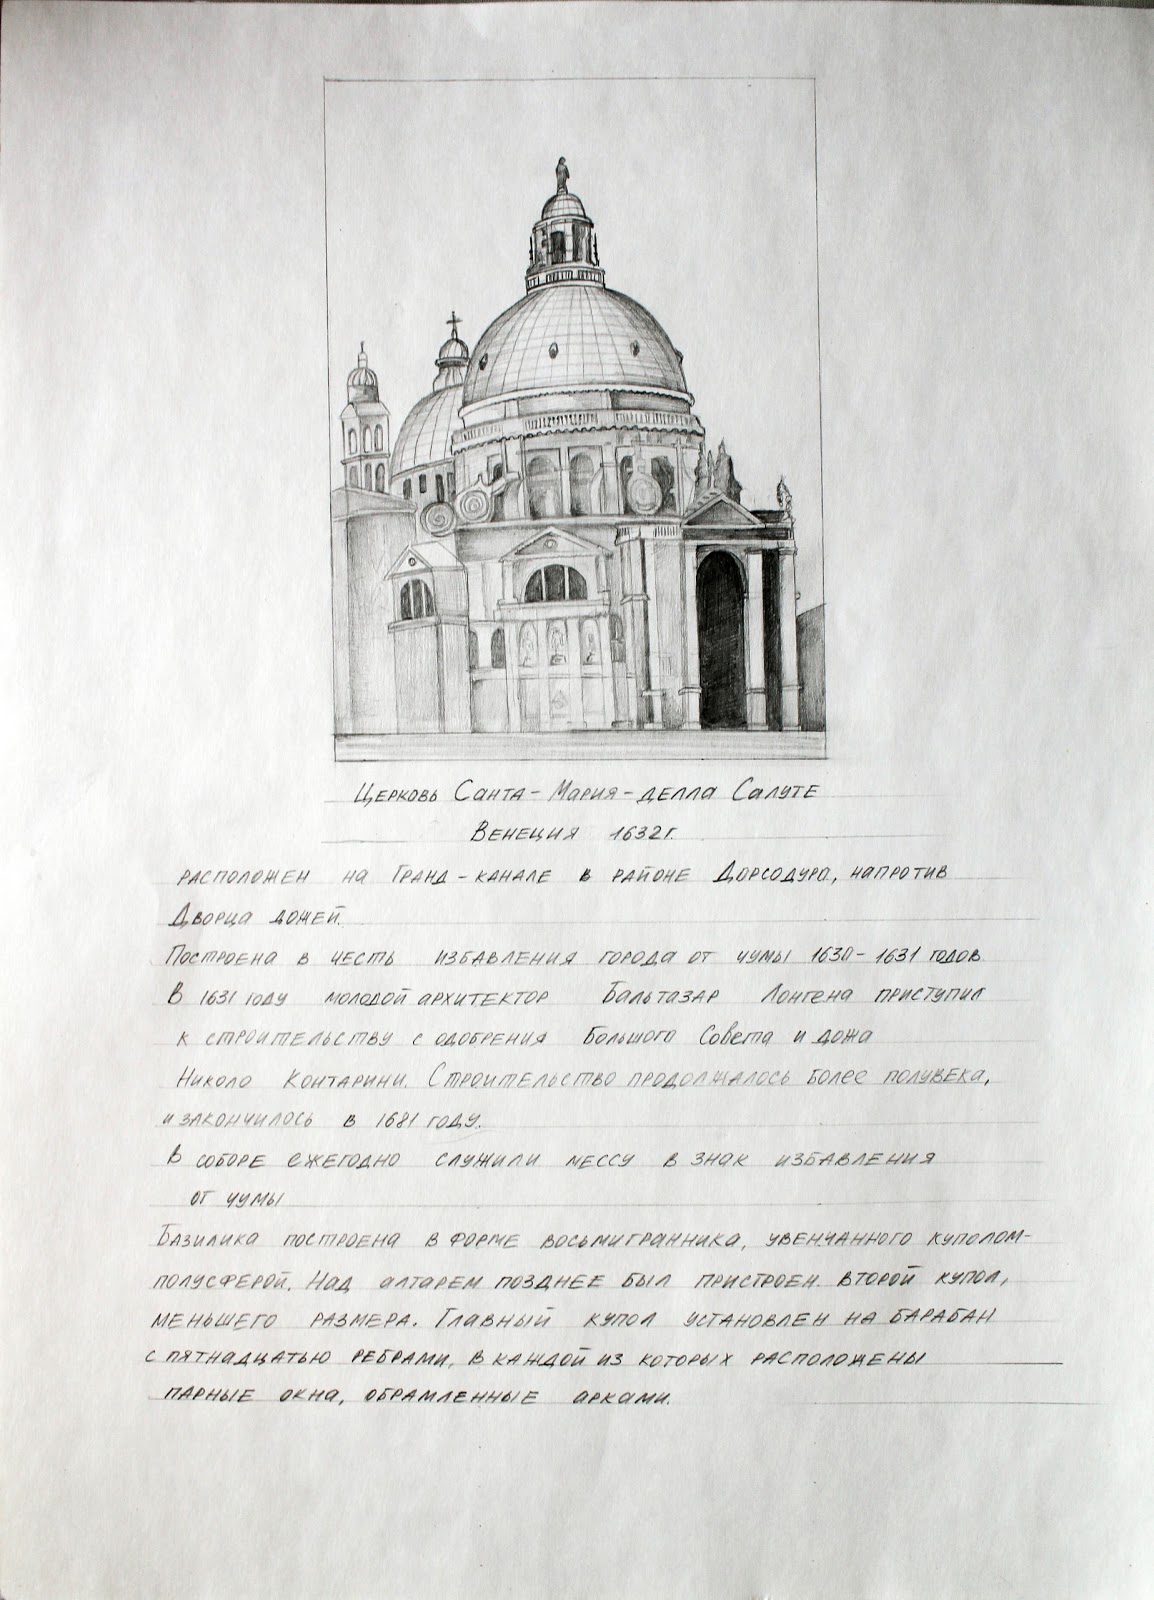 Церковь Санта-Мария-делла Салуте
Венеция 1632г.
расположен на Гранд-канале в районе Дорсодуро, напротив
Дворца дожей.
Построена в честь избавления города от чумы 1630-1631 годов
В 1631 году молодой архитектор Бальтазар Лонгена приступил
к строительству с одобрения Большого Совета и дожа
Николо Контарини. Строительство продолжалось более полувека,
и закончилось в 1681 году.
В соборе ежегодно служили мессу в знак избавления
от чумы
Базилика построена в форме восьмигранника, увенчанного куполом-
полусферой. Над алтарем позднее был пристроен второй купол,
меньшего размера. Главный купол установлен на барабан
с пятнадцатью ребрами, в каждой из которых расположены
парные окна, обрамленные арками.